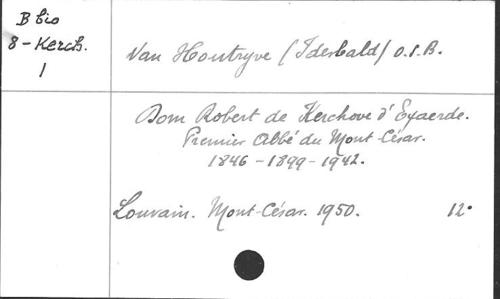 B bio
8-Kerch.
1
Van Houtryve (Idesbald) O.S.B.
Dom Robert de Kerchove d'Exaerde.
Premier Abbé du Mont-César.
1846-1899-1942.
Louvain. Mont-César. 1950. 12°